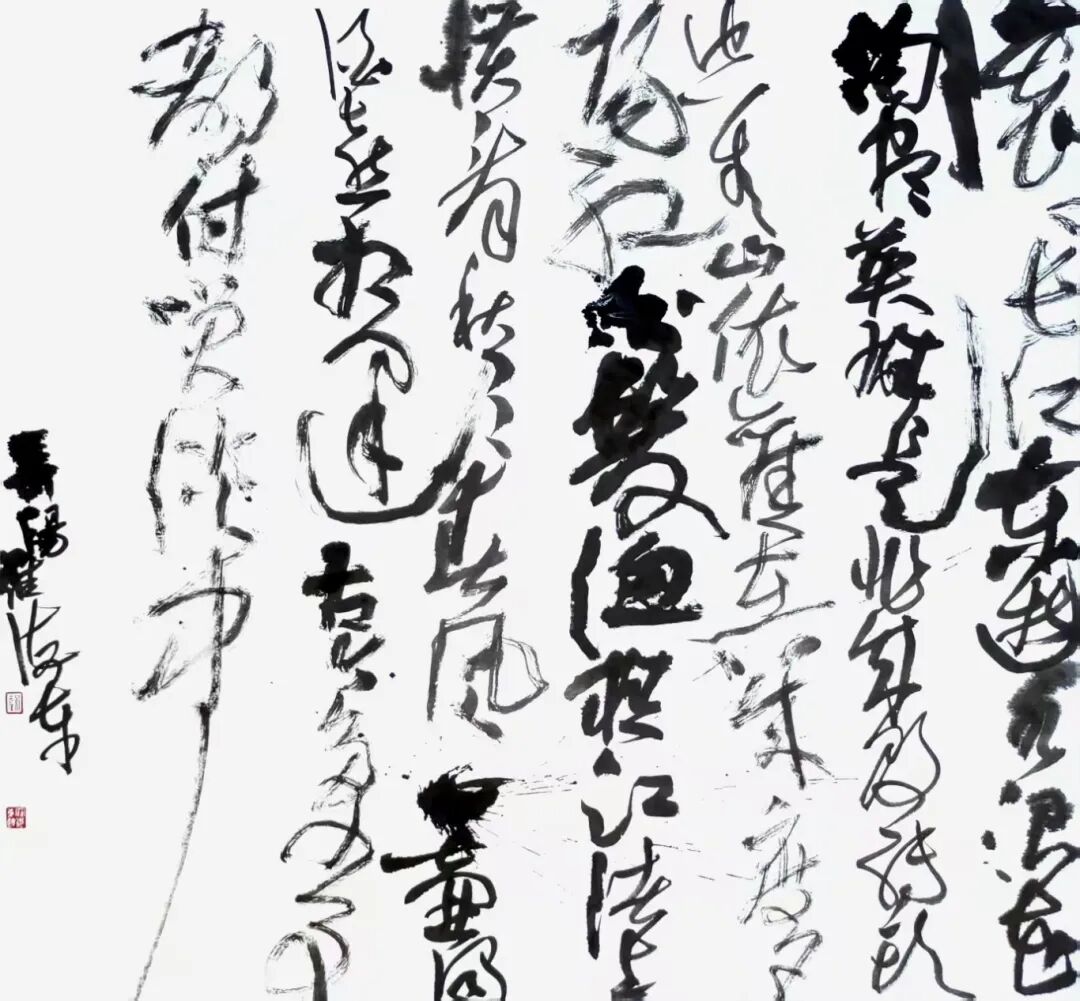 滚滚长江东逝水浪花
淘尽英雄是非成败转头
空青山依旧在几度夕
阳红白发渔樵江渚上
惯看秋月春风一壶浊
酒喜相逢古今多少事
都付笑谈中
阳崔海东